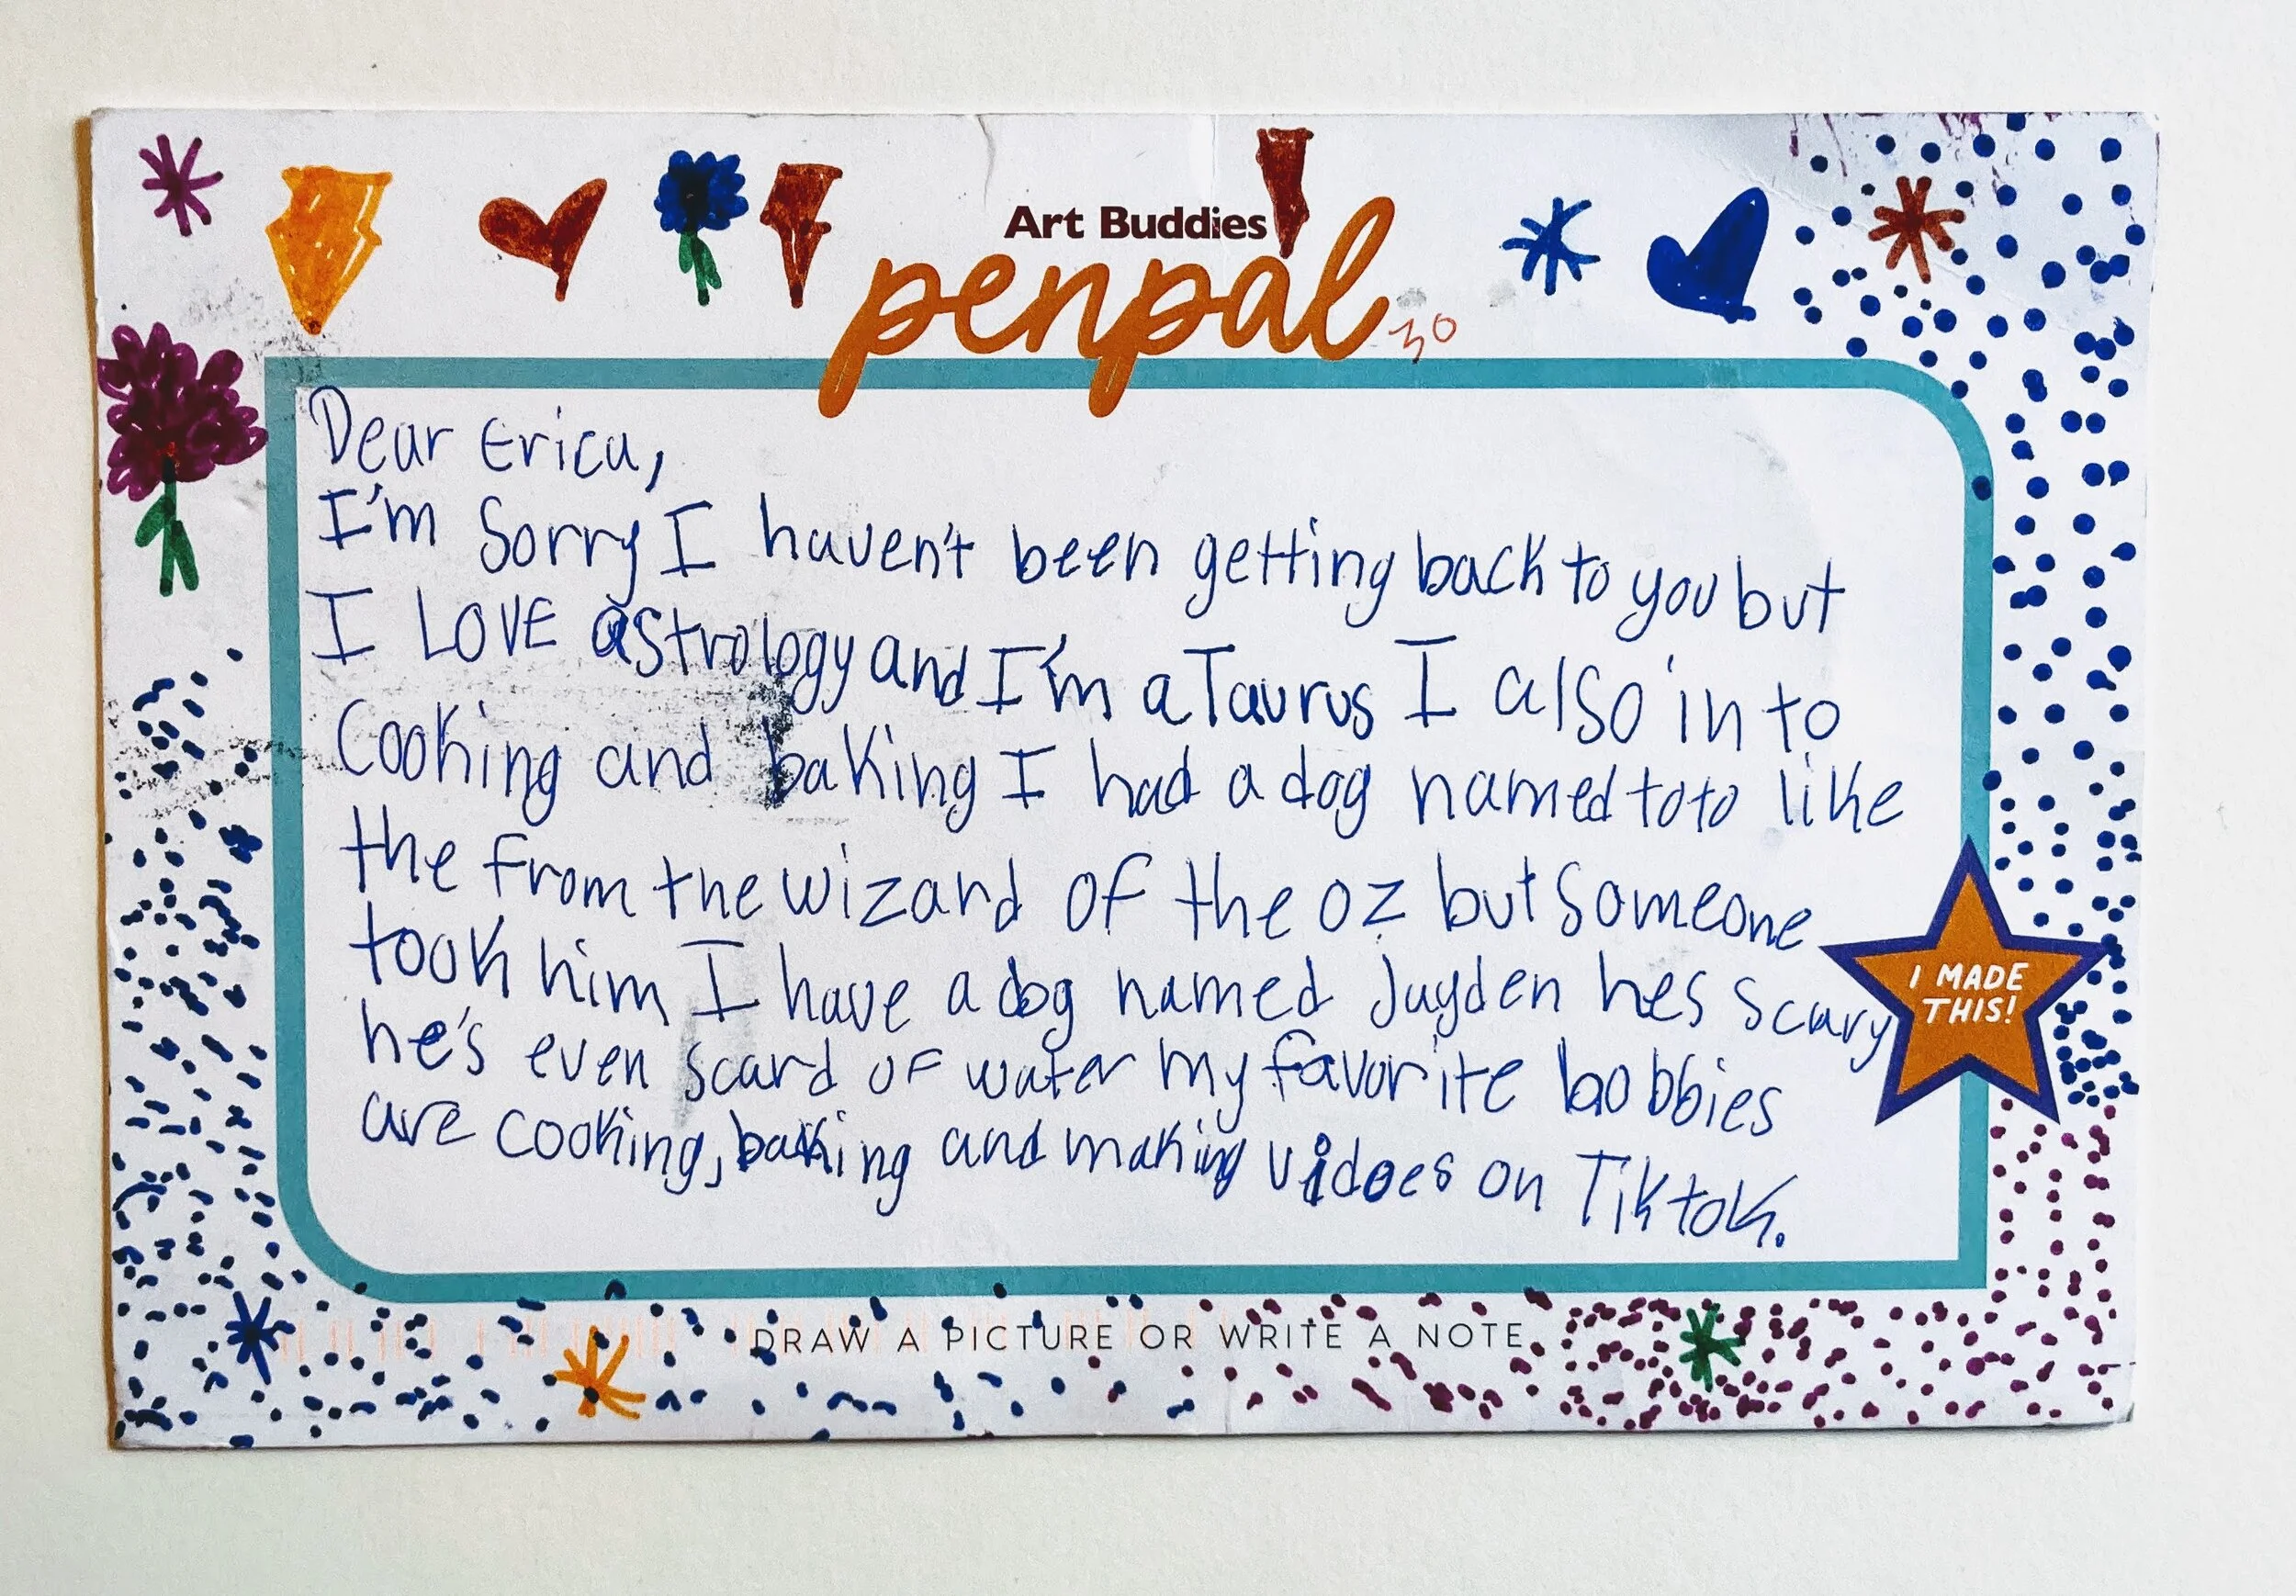 Art Buddies
penpal
30
Dear Erica,
I'm Sorry I haven't been getting back to you but
I LOVE astrology and I'm a Taurus I also in to
Cooking and baking I had a dog named toto like
the from the wizard of the oz but someone
took him I have a dog named Jayden hes scary
he's even scard of water my favorite hobbies
are cooking, baking and making vidoes on Tiktok.
I MADE
THIS!
DRAW A PICTURE OR WRITE A NOTE